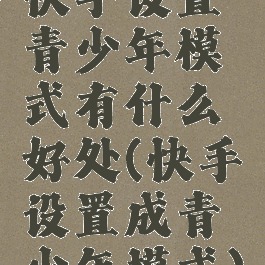 快手设置
青少年模
式有什么
好处(快手
设置成青
少年模式)